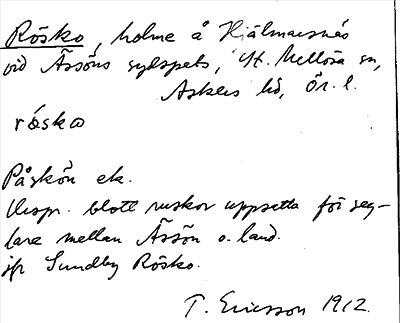 Rösko, holme å Hjälmarsnäs
vid Åsöns sydspets, St. Mellösa sn,
Askers hd, Ör. l.
råsko
Påskön ek.
Urspr. blott ruskor uppsatta för seg-
lare mellan Åsön o. land.
jfr Sundby Rösko.
T. Ericsson 1912.